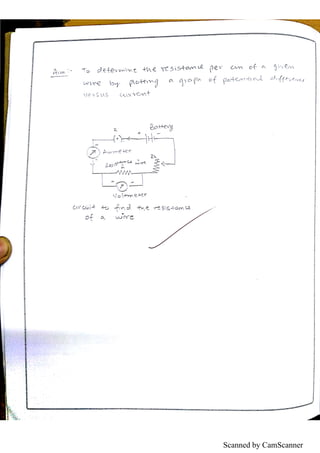 Aim:- To determine the resistance per cm of a given
wire by plotting a graph of potential difference
versus current
K
Battery
+ -
Ammeter
Resistance wire
Rh
+ -
Voltmeter
circuit to find the resistance
of a wire
Scanned by CamScanner